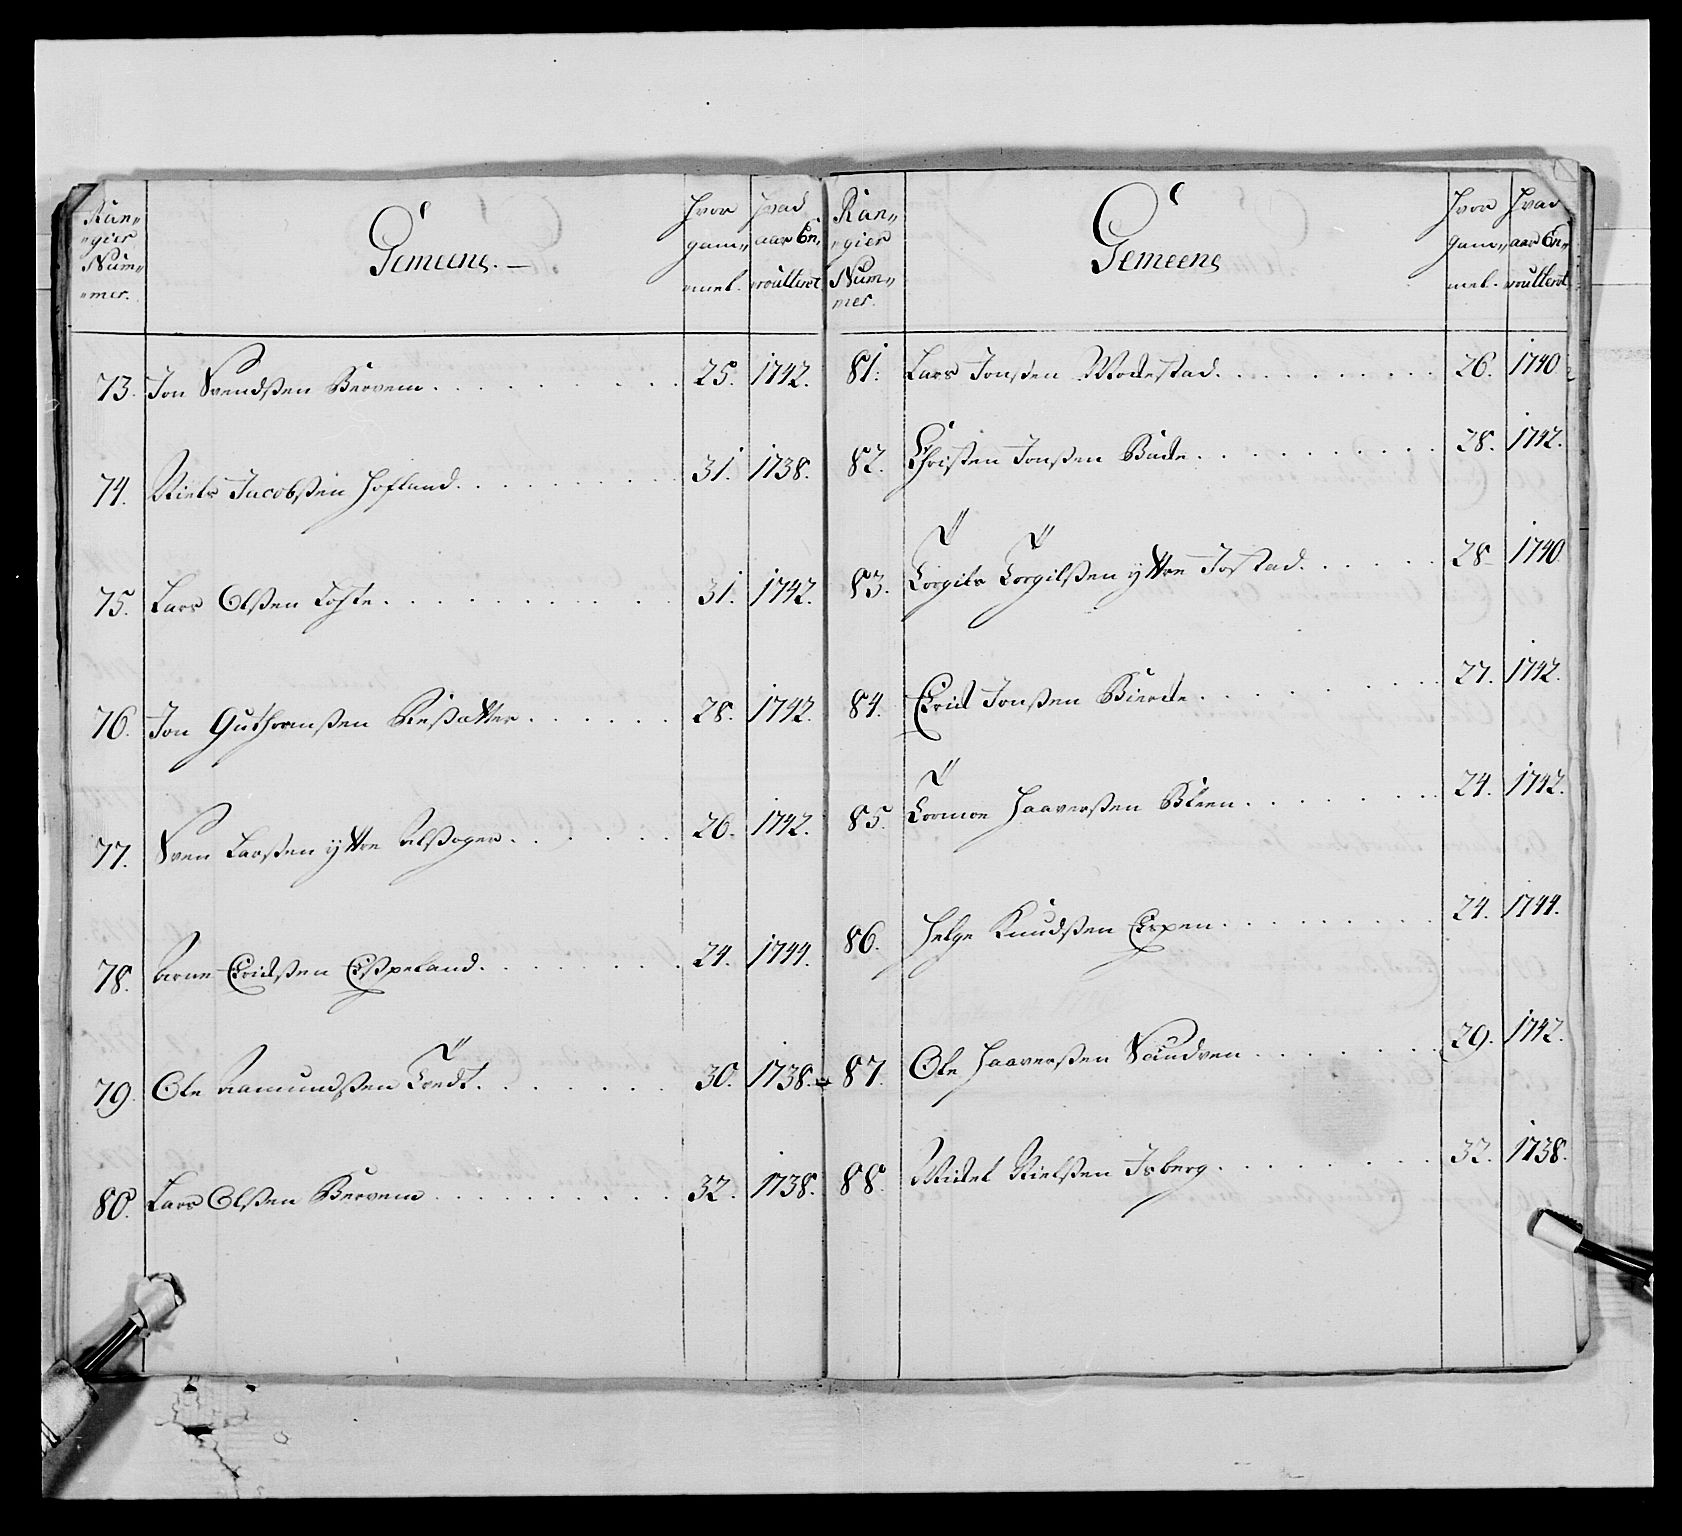 Ran-
gier
Num-
mer.
Gemeene.
Hvor
gam-
mel.
Hvad
aar En-
roulleret
73. Jon Svendsen Berven 25. 1742.
74. Niels Jacobsen Hofland 31. 1738.
75. Lars Olsen Tofte 31. 1742.
76. Jon Guthormsen 28. 1742.
77. Sven Larsen yttre Alsager 26. 1742.
78. Arne Erichsen Espeland 24. 1744.
79. Ole Aamundsen Tvedt 30. 1738.
80. Lars Olsen Berven 32. 1738.
Ran-
gier
Num-
mer.
Gemeene
Hvor
gam-
mel.
Hvad
aar En-
roulleret
81. Lars Jonsen Mockestad 26. 1740
82. Christen Jonsen Bude 28. 1742.
83. Torgils Torgilsen yttre Jostad 28 1740
84. Erich Jonsen 27. 1742.
85. Tormoe Haaversen Bleen 24. 1742.
86. Helge Knudsen Erpen 24. 1744.
87. Ole Haaversen Saudven 29. 1742.
88. Michel Nielsen Isberg 32. 1738.